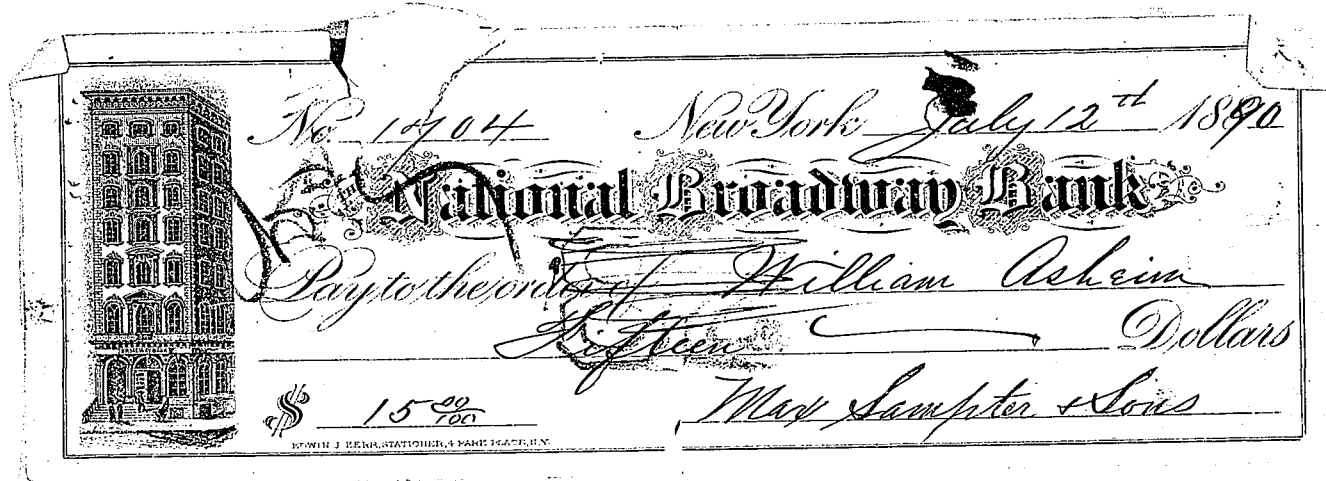 No. 1704 New York July 12th 1890
National Broadway Bank
Pay to the order of William Asheim
Fifteen Dollars
$ 15 00/100 Max Sampter & Sons
EDWIN J. KERR, STATIONER, 4 PARK PLACE, N.Y.